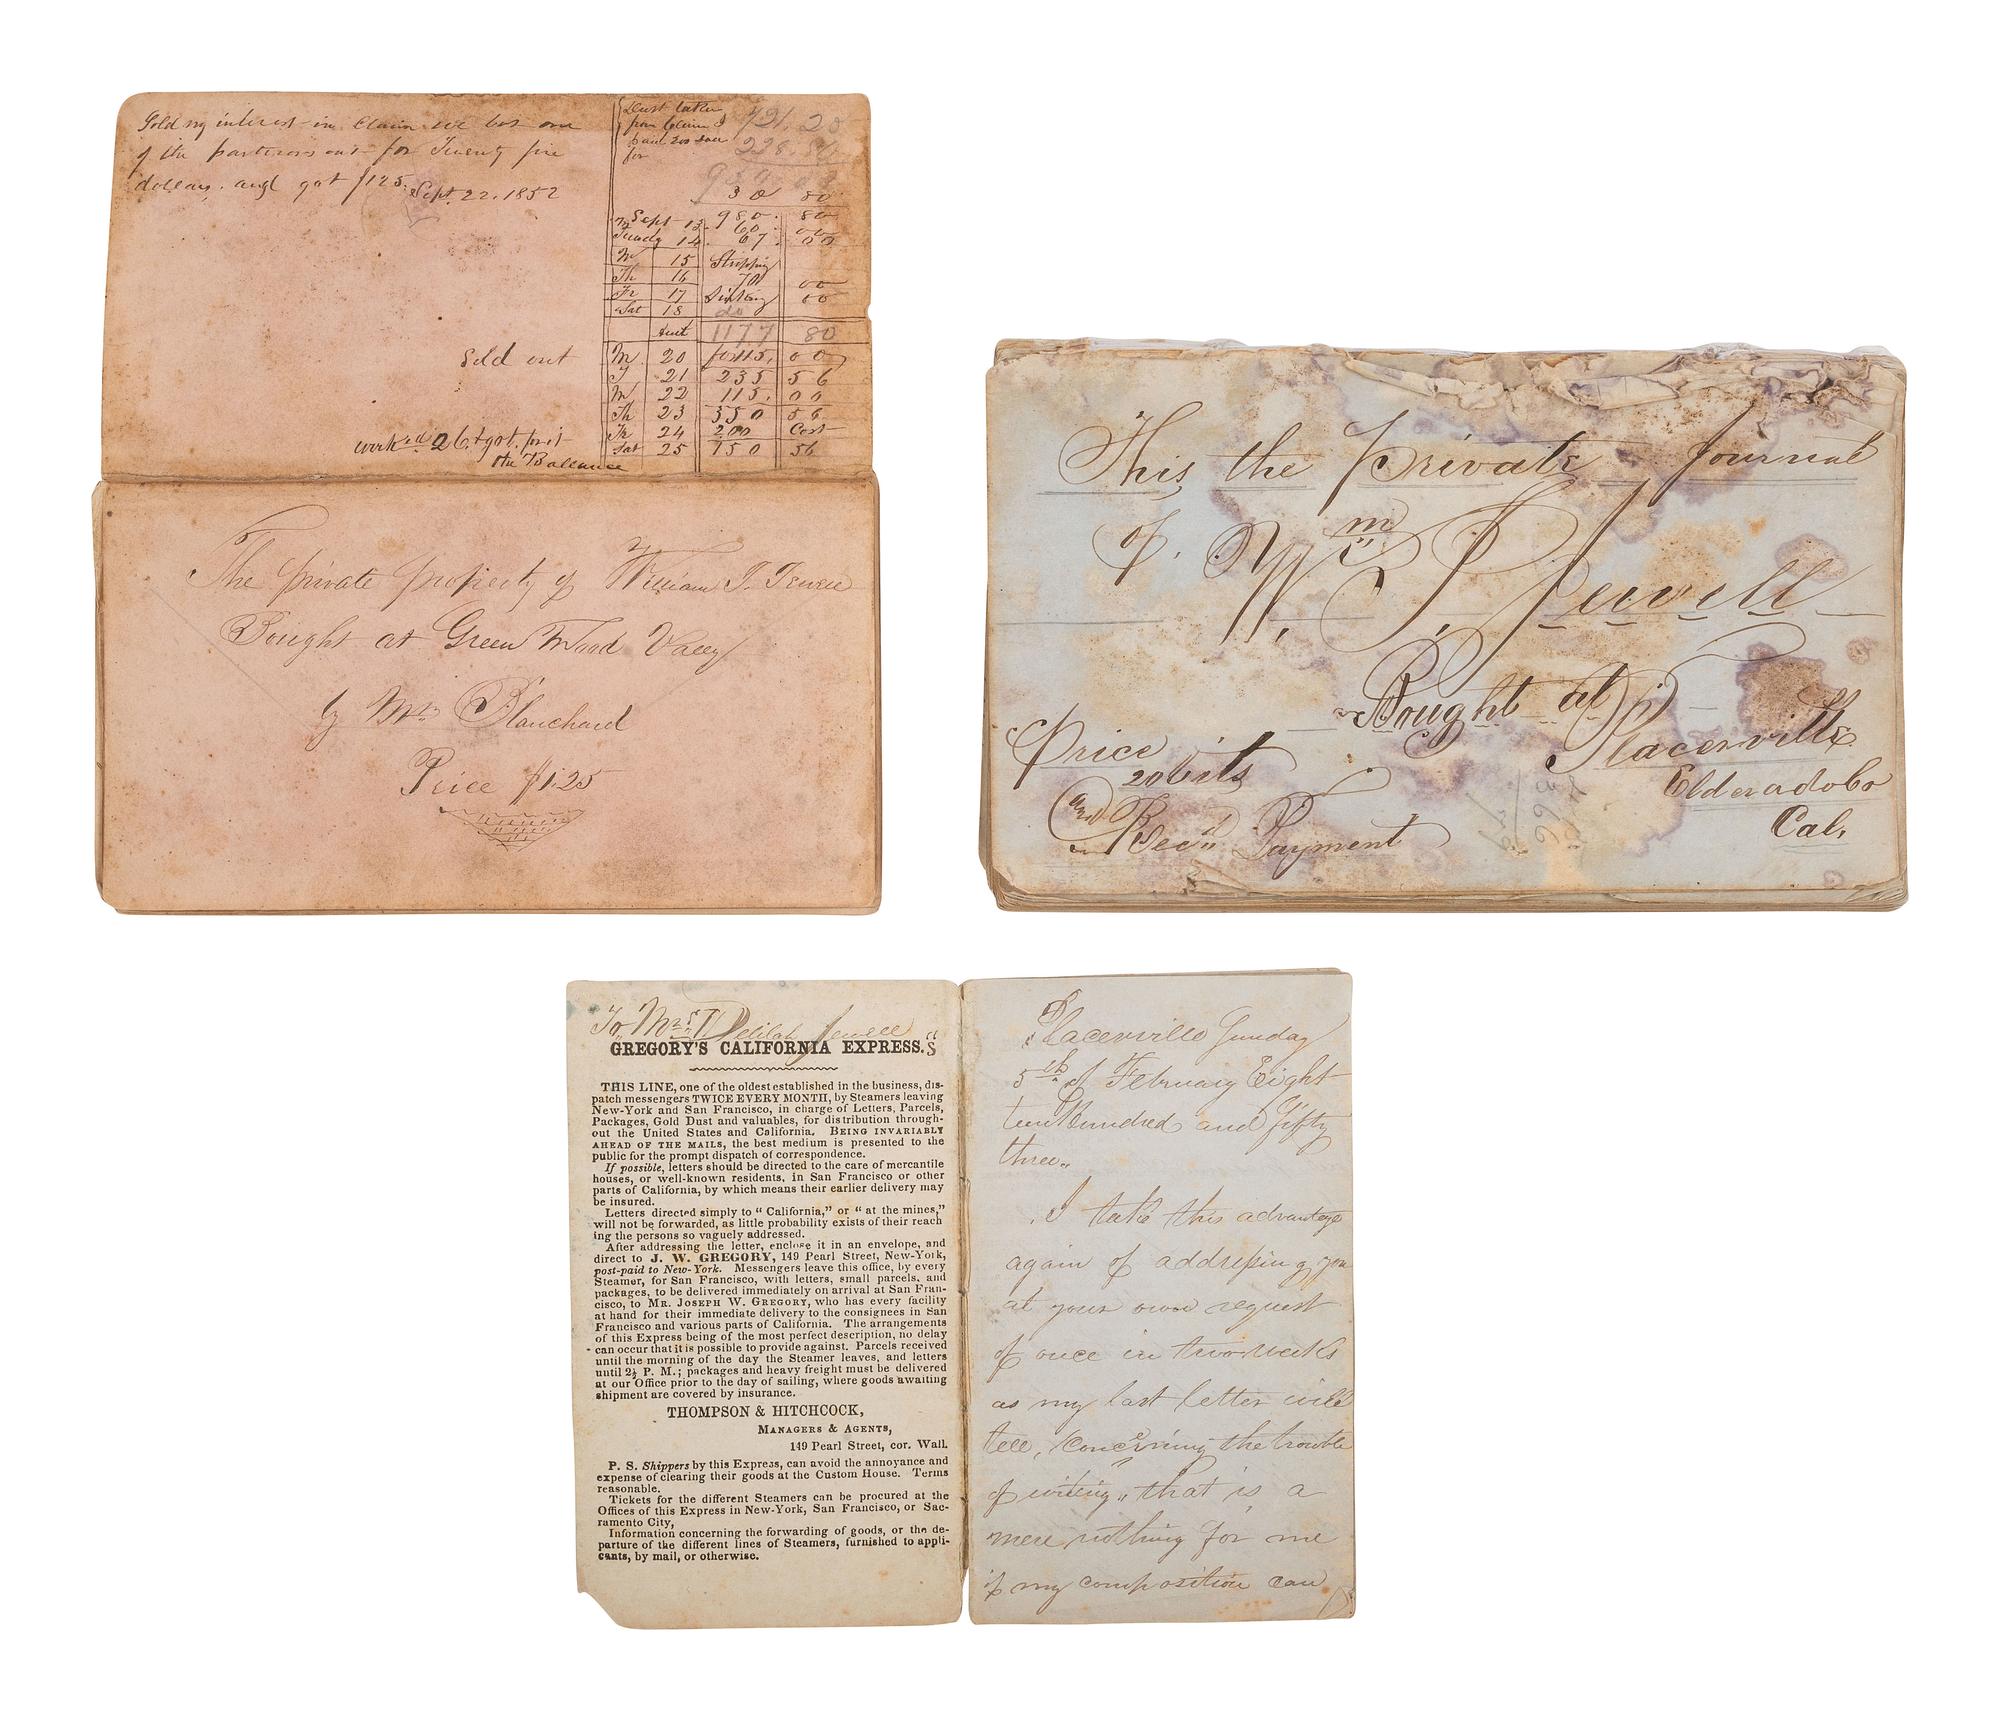 Sold my interest in Claim we bot one
of the partners out for Twenty five
dollars, and got $125. Sept. 22. 1852
Sold out
work ed 26 & got for it
the Ballance
Dust taken
from Claim I
paid 200
for
721. 20
228.
30 80
Sept 13. 980. 80
M 60. 00
Tuesdy 14. 67. 00
W 15 Stripping
Th 16 70 00
Fr 17 Sinking 00
Sat 18 do
Amt 1177 80
M 20 115. 00
T 21 235 56
W 22 115. 00
Th 23 350 56
Fr 24 200 Cost
Sat 25 150 56
The private property of William T. Jewell
Bought at Green Wood Valley
by Mr. Blanchard
Price $1.25
This the Private Journal
of. Wm T. Jewell
Bought at Placerville
Price
20 bits
Elderado Co
Cal.
And Rec'd Payment
366
To Mrs Delilah Jewell
GREGORY'S CALIFORNIA EXPRESS.
THIS LINE, one of the oldest established in the business, dis-
patch messengers TWICE EVERY MONTH, by Steamers leaving
New-York and San Francisco, in charge of Letters, Parcels,
Packages, Gold Dust and valuables, for distribution through-
out the United States and California. BEING INVARIABLY
AHEAD OF THE MAILS, the best medium is presented to the
public for the prompt dispatch of correspondence.
If possible, letters should be directed to the care of mercantile
houses, or well-known residents, in San Francisco or other
parts of California, by which means their earlier delivery may
be insured.
Letters directed simply to "California," or "at the mines,"
will not be forwarded, as little probability exists of their reach
ing the persons so vaguely addressed.
After addressing the letter, enclose it in an envelope, and
direct to J. W. GREGORY, 149 Pearl Street, New-York,
post-paid to New-York. Messengers leave this office, by every
Steamer, for San Francisco, with letters, small parcels, and
packages, to be delivered immediately on arrival at San Fran-
cisco, to MR. JOSEPH W. GREGORY, who has every facility
at hand for their immediate delivery to the consignees in San
Francisco and various parts of California. The arrangements
of this Express being of the most perfect description, no delay
can occur that it is possible to provide against. Parcels received
until the morning of the day the Steamer leaves, and letters
until 2½ P. M.; packages and heavy freight must be delivered
at our Office prior to the day of sailing, where goods awaiting
shipment are covered by insurance.
THOMPSON & HITCHCOCK,
MANAGERS & AGENTS,
149 Pearl Street, cor. Wall.
P. S. Shippers by this Express, can avoid the annoyance and
expense of clearing their goods at the Custom House. Terms
reasonable.
Tickets for the different Steamers can be procured at the
Offices of this Express in New-York, San Francisco, or Sac-
ramento City,
Information concerning the forwarding of goods, or the de-
parture of the different lines of Steamers, furnished to appli-
cants, by mail, or otherwise.
Placerville Sunday
5th of February Eight
teen Hundred and fifty
three..
I take this advantage
again of addressing you
at your own request
of once in two weeks
as my last letter will
tell, concerning the trouble
of writing,, that is, a
mere nothing for me
if my composition can